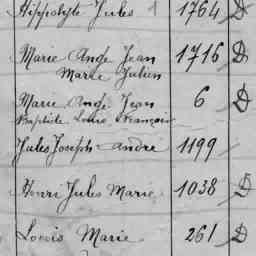 Hippolyte Jules 1 1764 D
Marie Ange Jean 1716 D
Marie Julien
Marie Ange Jean 6 D
Baptiste Louis François
Jules Joseph André 1199
Henri Jules Marie 1038 D
Louis Marie 261 D